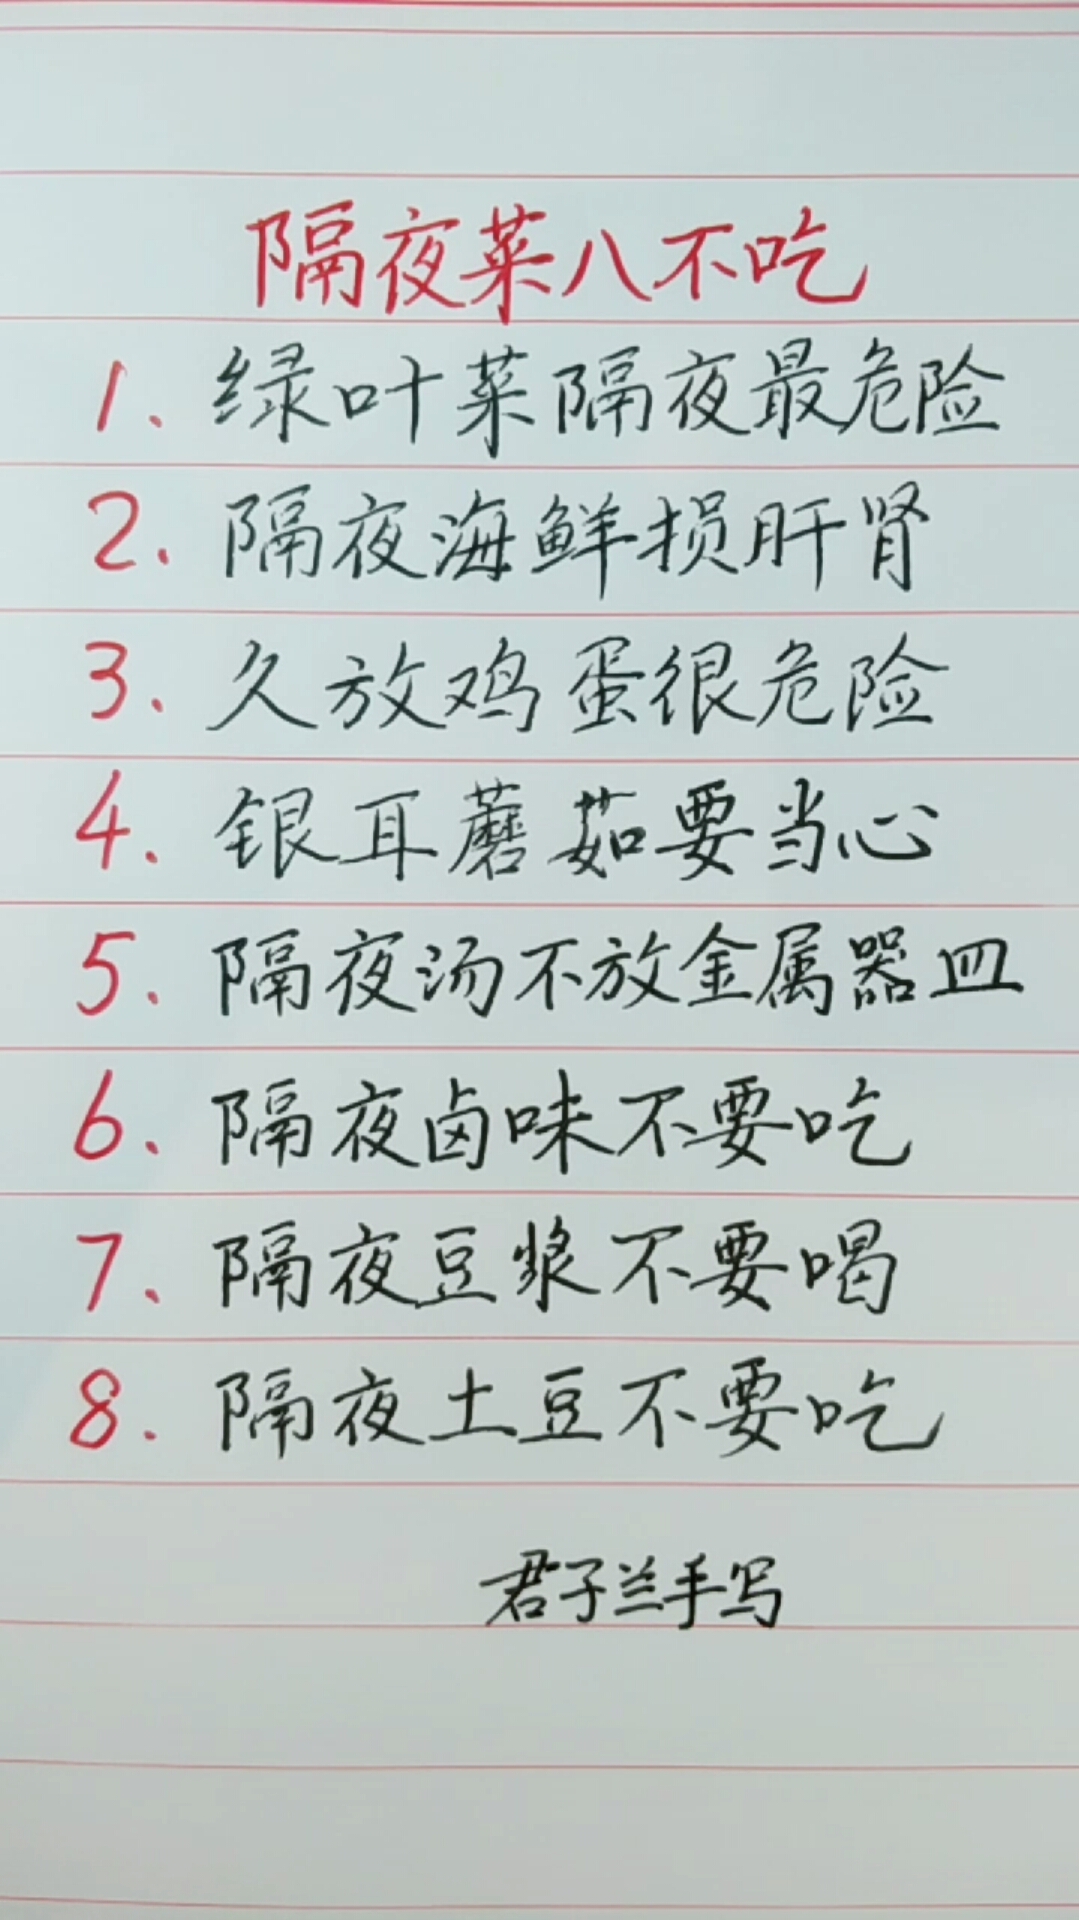 隔夜菜八不吃
1. 绿叶菜隔夜最危险
2. 隔夜海鲜损肝肾
3. 久放鸡蛋很危险
4. 银耳蘑茹要当心
5. 隔夜汤不放金属器皿
6. 隔夜卤味不要吃
7. 隔夜豆浆不要喝
8. 隔夜土豆不要吃
君子兰手写